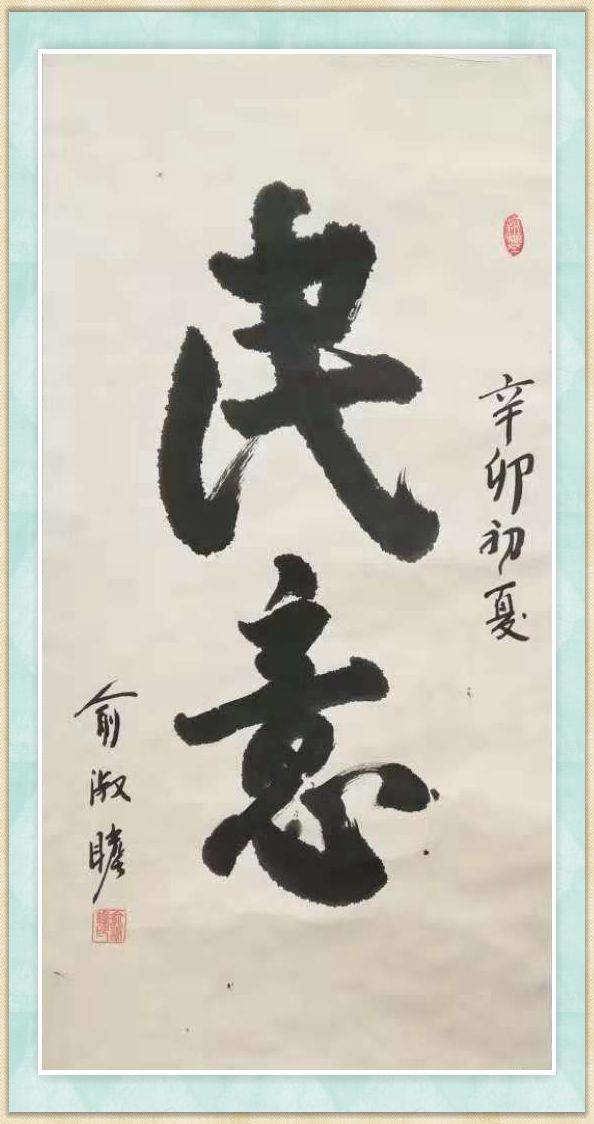 民意
辛卯初夏
俞淑瞻